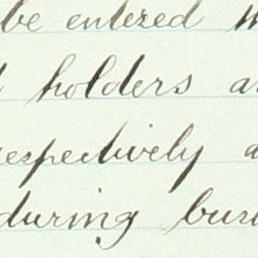 be entered
holders
respectively
during